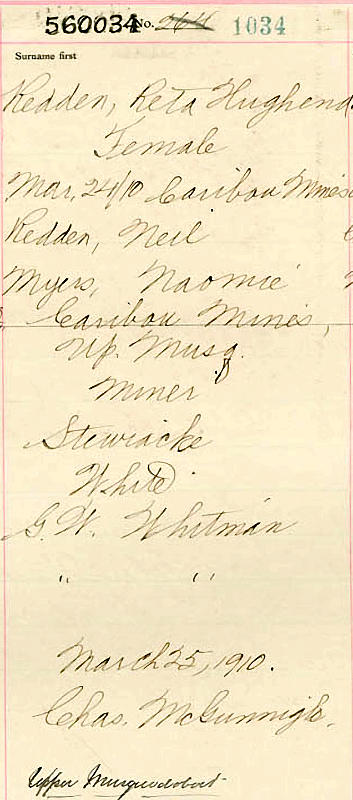 560034 No. 264 1034
Surname first
Redden, Reta Hughend
Female
Mar. 24/10 Caribou Mines
Redden, Neil
Myers, Naomie
Caribou Mines,
Up. Musq.
Miner
Stewiacke
White
G. W. Whitman
" "
March 25, 1910.
Chas. McGunnigle.
Upper Musquodoboit